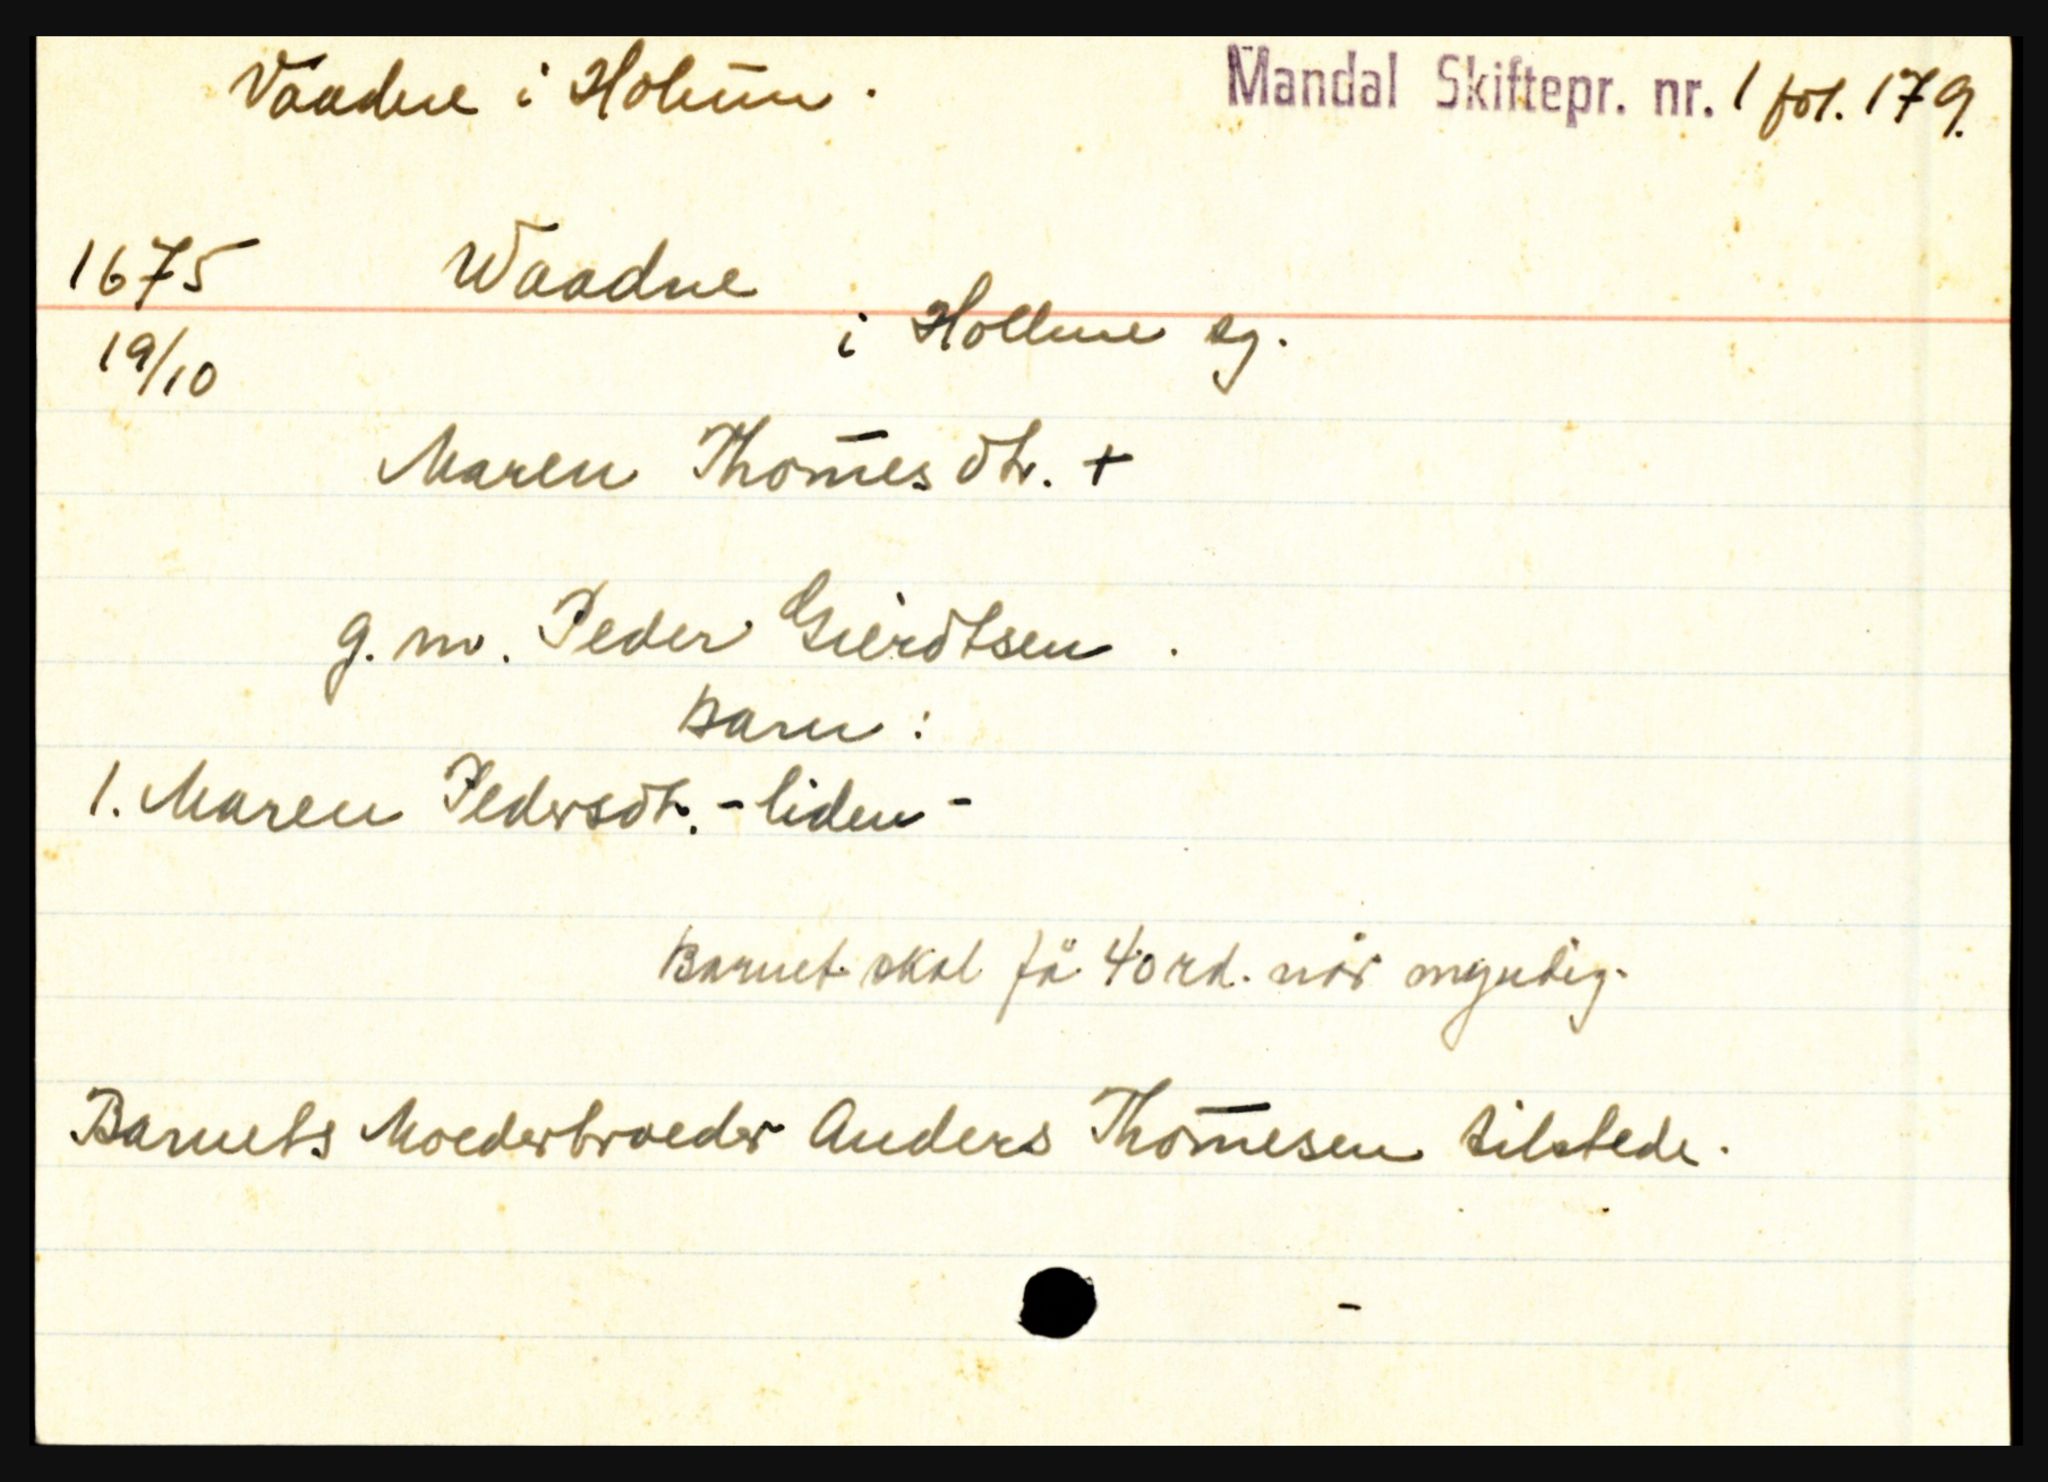 Vaadne i Holum. Mandal Skiftepr. nr. 1 fol. 179.
1675 Waadne
19/10 i Hollme sg.
Maren Thom̅esdtr. +
g. m. Peder Gierdtsen.
Barn:
1. Maren Pedersdtr. - liden -
Barnet skal få 40 rd. når myndig.
Barnets Moederbroeder Anders Thom̅esen tilstede.
-